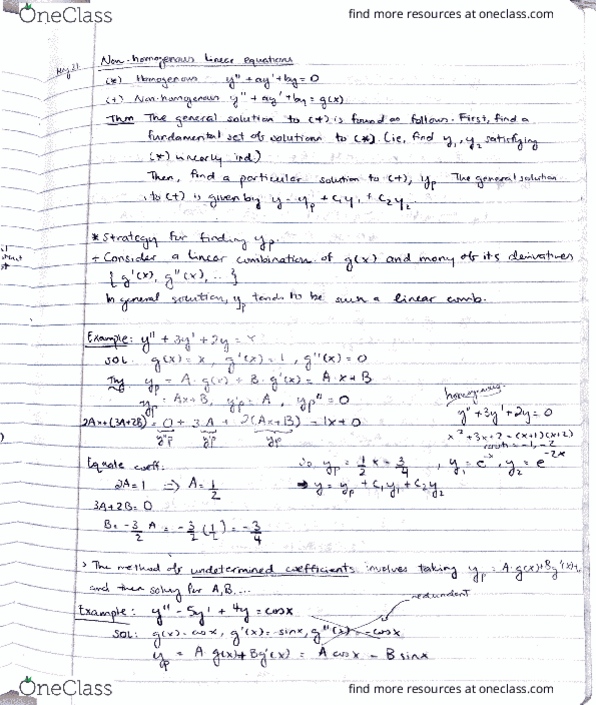 OneClass
find more resources at oneclass.com
May 21
Non-homogenous linear equations
(*) Homogenous y" + ay' + by = 0
(+) Non-homogenous y" + ay' + by = g(x)
Thm The general solution to (+) is found as follows. First, find a
fundamental set of solutions to (*) (ie, find y₁, y₂ satisfying
(*) linearly ind.)
Then, find a particular solution to (+), yp. The general solution
to (+) is given by y = yp + c₁y₁ + c₂y₂
* Strategy for finding yp.
- Consider a linear combination of g(x) and many of its derivatives
{ g'(x), g"(x), ... }
In general solution, yp tends to be such a linear comb.
Example: y" + 3y' + 2y = x
SOL g(x) = x, g'(x) = 1, g"(x) = 0
Try yp = A·g(x) + B·g'(x) = A·x + B
yp = Ax+B, y'p = A, yp" = 0
2Ax+(3A+2B) = 0 + 3A + 2(Ax+B) = 1x + 0
y"p y'p yp
homogenous
y" + 3y' + 2y = 0
x² + 3x + 2 = (x+1)(x+2)
roots = -1, -2
Equate coeff:
so yp = 1/2 x - 3/4 , y₁ = e^-x, y₂ = e^-2x
2A = 1 => A = 1/2
→ y = yp + c₁y₁ + c₂y₂
3A + 2B = 0
B = -3/2 A = -3/2 (1/2) = -3/4
> The method of undetermined coefficients involves taking yp = A·g(x)+Bg'(x)+
and then solving for A, B....
redundent
Example: y" - 5y' + 4y = cosx
SOL: g(x) = cosx, g'(x) = -sinx, g"(x) = -cosx
yp = A g(x) + Bg'(x) = A cosx - B sinx
OneClass
find more resources at oneclass.com